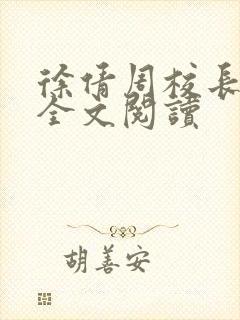 徐倩周校長
全文閱讀
胡善安